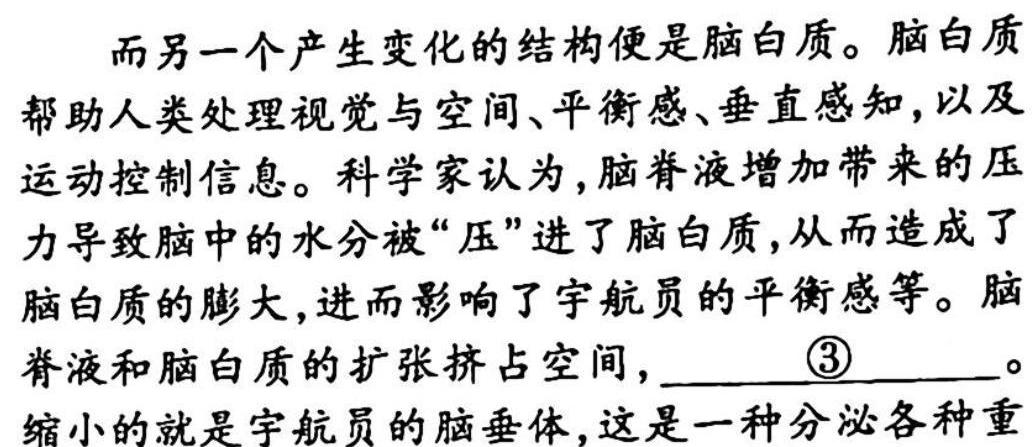 而另一个产生变化的结构便是脑白质。脑白质
帮助人类处理视觉与空间、平衡感、垂直感知,以及
运动控制信息。科学家认为,脑脊液增加带来的压
力导致脑中的水分被“压”进了脑白质,从而造成了
脑白质的膨大,进而影响了宇航员的平衡感等。脑
脊液和脑白质的扩张挤占空间,____③____。
缩小的就是宇航员的脑垂体,这是一种分泌各种重